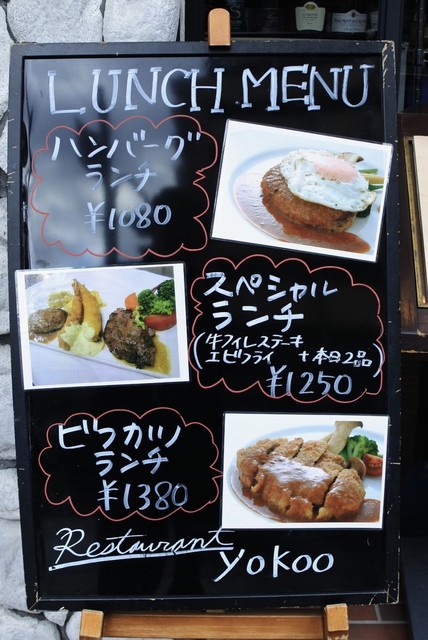 LUNCH MENU
ハンバーグ
ランチ
¥1080
スペシャル
ランチ
(牛フィレステーキ
エビフライ +本日2品)
¥1250
ビフカツ
ランチ
¥1380
Restaurant
yokoo